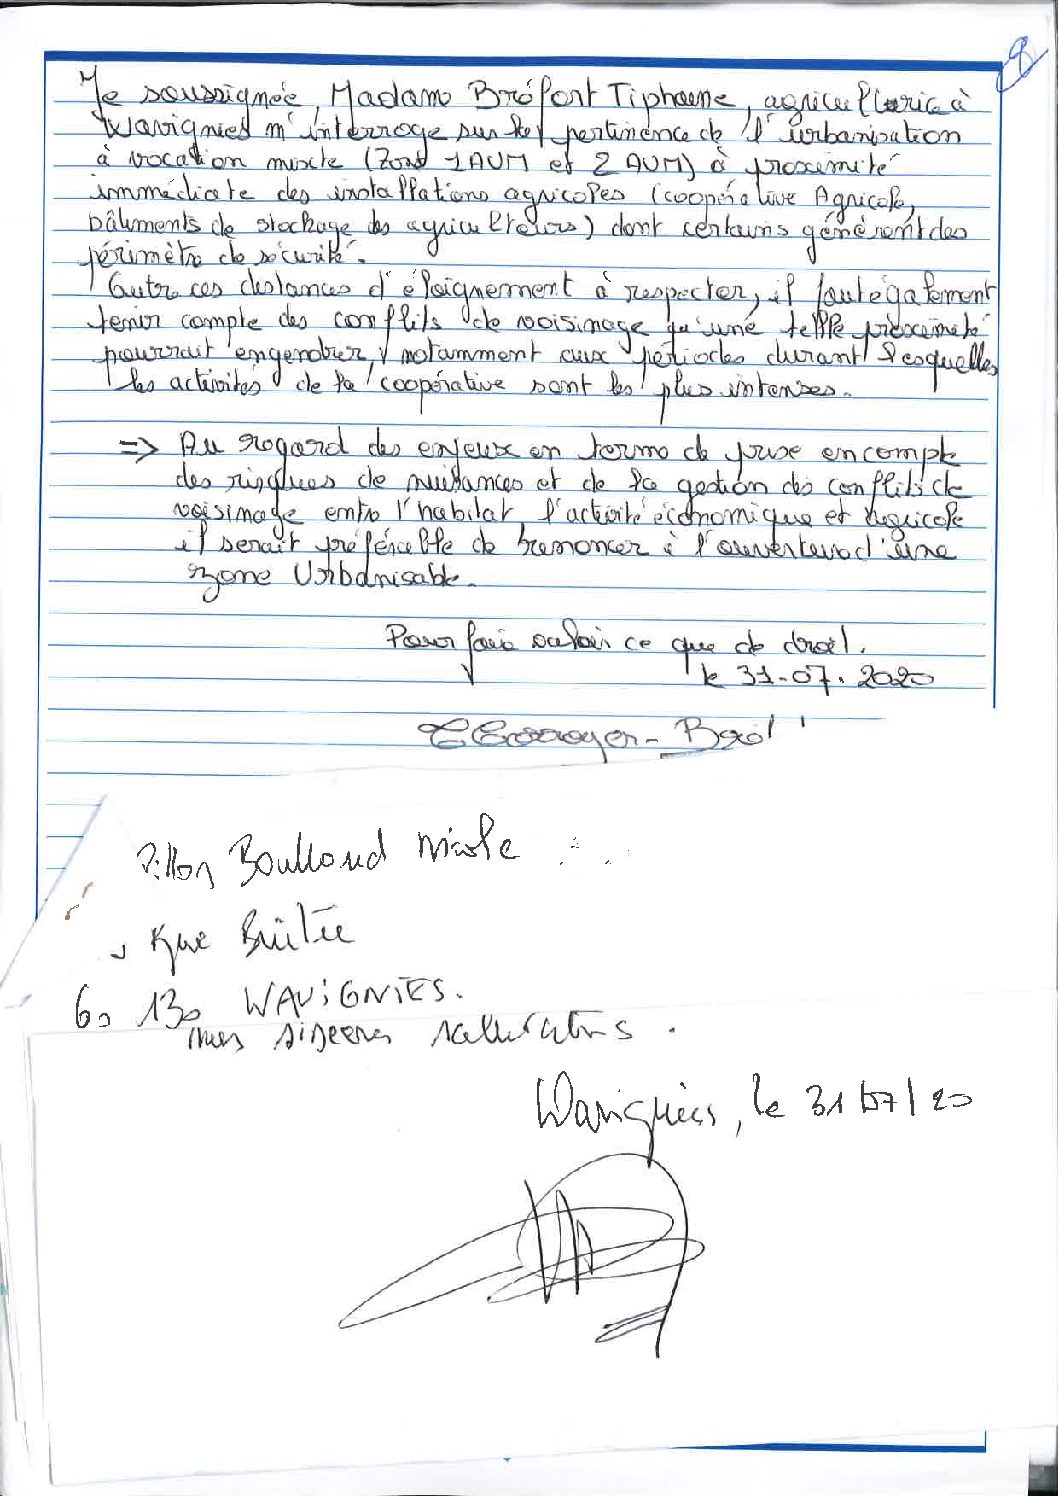 8
Je soussignée, Madame Bréfort Tiphaine, agricultrice à
Wavignies m'interroge sur la pertinence de l'urbanisation
à vocation mixte (Zone 1AUM et 2 AUM) à proximité
immédiate des installations agricoles (coopérative Agricole,
bâtiments de stockage des agriculteurs) dont certains génèrent des
périmètre de sécurité.
Outre ces distances d'éloignement à respecter, il faut également
tenir compte des conflits de voisinage qu'une telle proximité
pourrait engendrer, notamment aux périodes durant lesquelles
les activités de la coopérative sont les plus intenses.
=> Au regard des enjeux en terme de prise en compte
des risques de nuisances et de la gestion des conflits de
voisinage entre l'habitat, l'activité économique et Agricole
il serait préférable de renoncer à l'ouverture d'une
zone Urbanisable.
Pour faire valoir ce que de droit.
le 31-07.2020
Pillon Boulland Nicole
Rue Brûlée
60 130 WAVIGNIES.
mes sincères salutations.
Wavignies, le 31/07/20